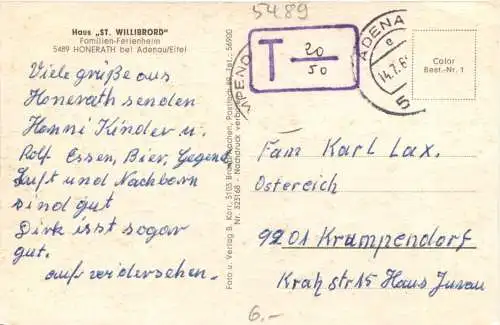 5489
Haus „ST. WILLIBRORD"
Familien-Ferienheim
5489 HONERATH bei Adenau/Eifel
Viele grüße aus
Honerath senden
Henni Kinder u.
Rolf Essen, Bier, Gegend
Luft und Nachbarn
sind gut
Dirk isst sogar
gut.
auf wiedersehen.
Foto u. Verlag B. Korr, 5105
Nr. 323168 - Nachdruck verboten
T 20
50
ADENA
e
14.7.6
5
Color
Best.-Nr. 1
Fam Karl Lax.
Östereich
9201 Krumpendorf
Krah str 15 Haus
6.-